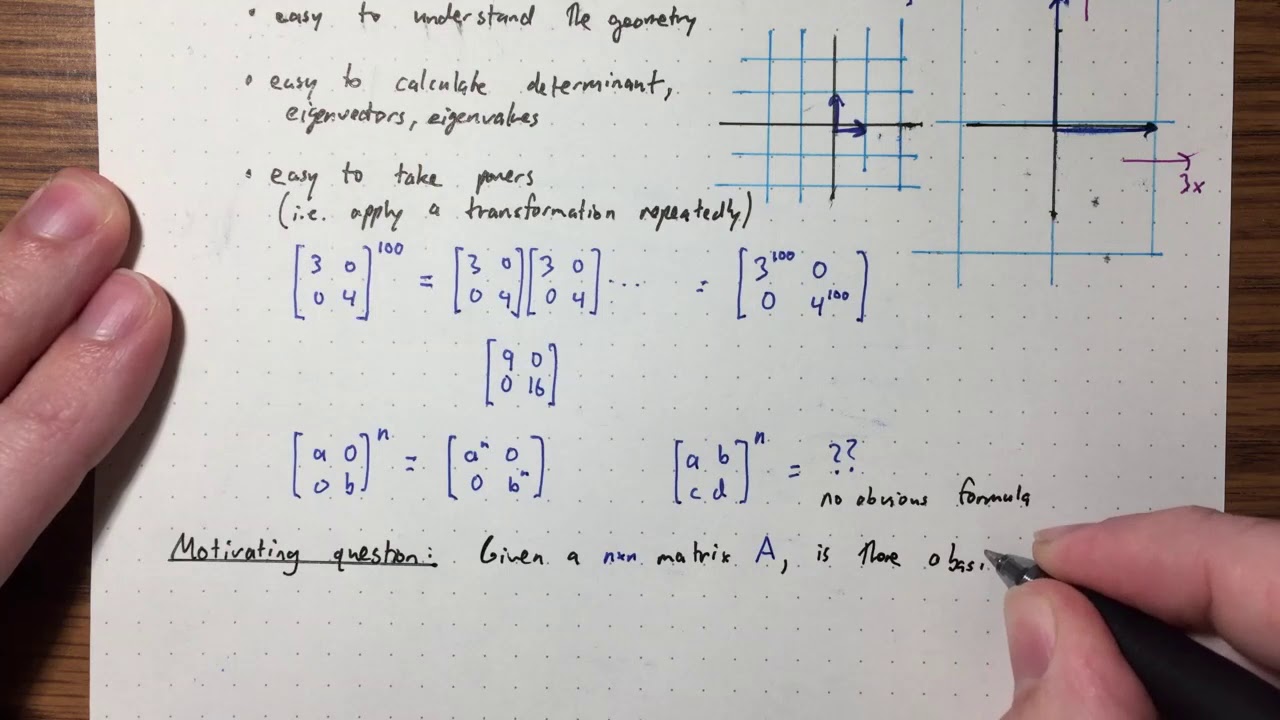 • easy to understand the geometry
• easy to calculate determinant,
eigenvectors, eigenvalues
• easy to take powers
(i.e. apply a transformation repeatedly)
3x
[3 0; 0 4]^100 = [3 0; 0 4][3 0; 0 4] ... = [3^100 0; 0 4^100]
[9 0; 0 16]
[a 0; 0 b]^n = [a^n 0; 0 b^n]
[a b; c d]^n = ??
no obvious formula
Motivating question: Given a n×n matrix A, is there a basi